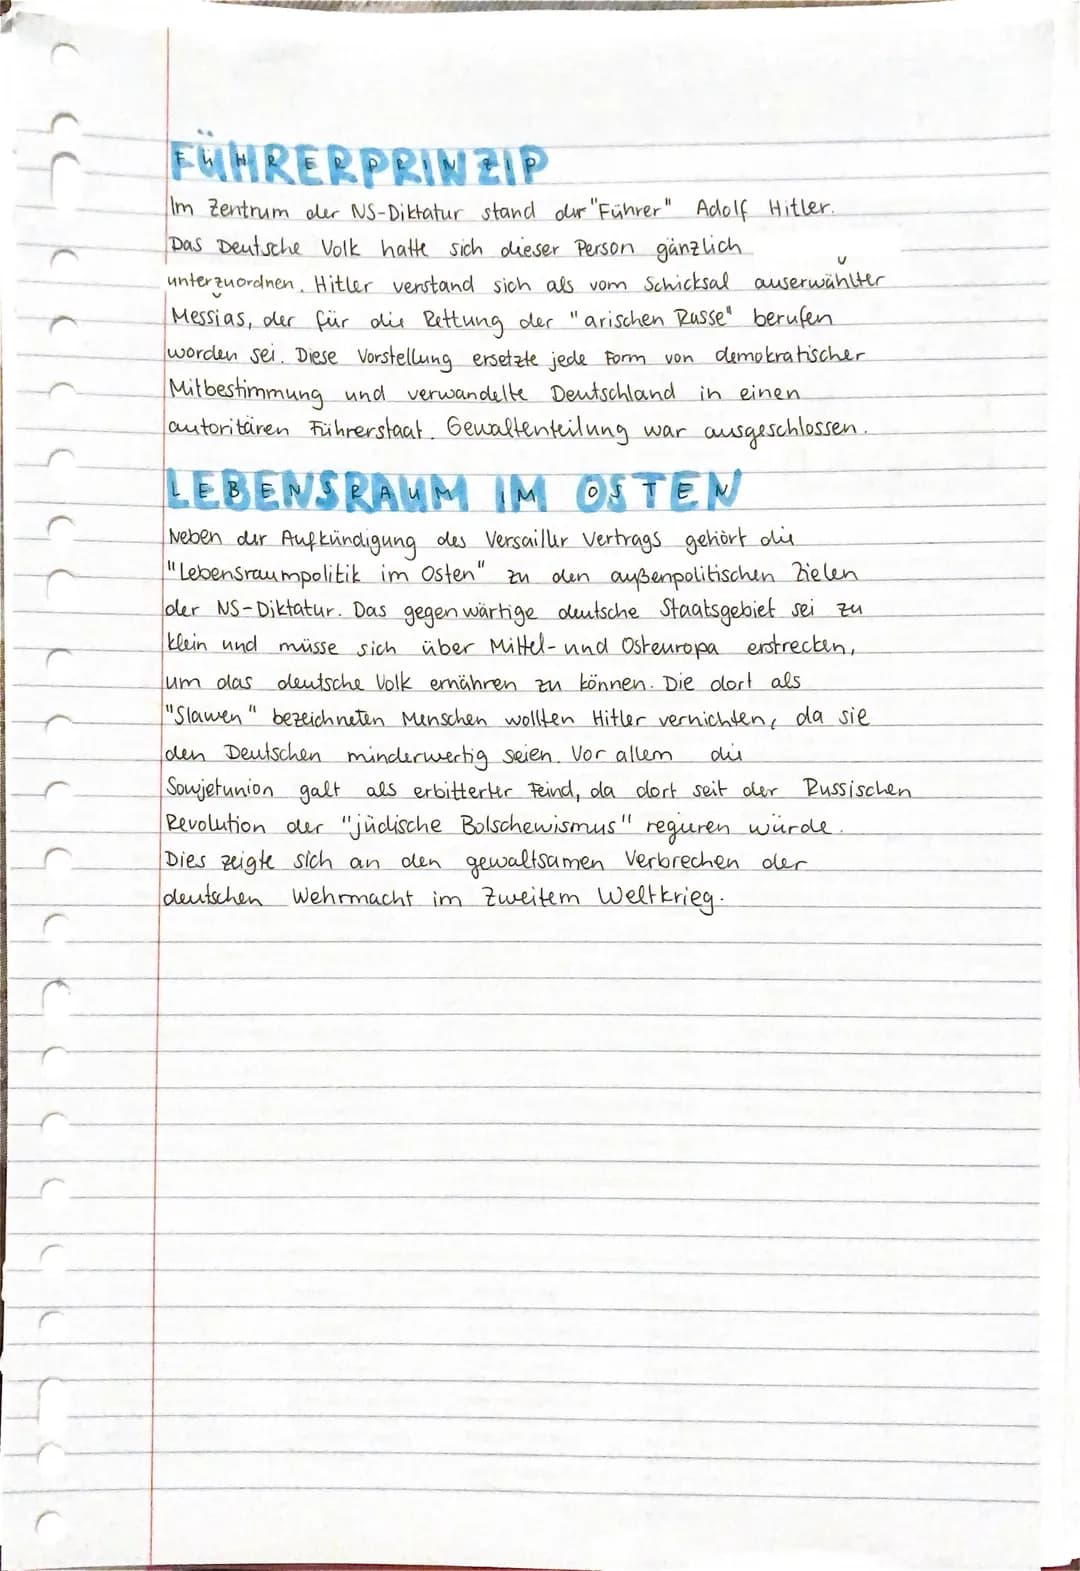 FÜHRERPRINZIP
Im Zentrum der NS-Diktatur stand der "Führer" Adolf Hitler.
Das Deutsche Volk hatte sich dieser Person gänzlich
unterzuordnen. Hitler verstand sich als vom Schicksal auserwählter
Messias, der für die Rettung der "arischen Rasse" berufen
worden sei. Diese Vorstellung ersetzte jede Form von demokratischer
Mitbestimmung und verwandelte Deutschland in einen
autoritären Führerstaat. Gewaltenteilung war ausgeschlossen.
LEBENSRAUM IM OSTEN
Neben der Aufkündigung des Versailler Vertrags gehört die
"Lebensraumpolitik im Osten" zu den außenpolitischen Zielen
der NS-Diktatur. Das gegenwärtige deutsche Staatsgebiet sei zu
klein und müsse sich über Mittel- und Osteuropa erstrecken,
um das deutsche Volk ernähren zu können. Die dort als
"Slawen" bezeichneten Menschen wollten Hitler vernichten, da sie
den Deutschen minderwertig seien. Vor allem die
Sowjetunion galt als erbitterter Feind, da dort seit der Russischen
Revolution der "jüdische Bolschewismus" regieren würde.
Dies zeigte sich an den gewaltsamen Verbrechen der
deutschen Wehrmacht im Zweitem Weltkrieg.